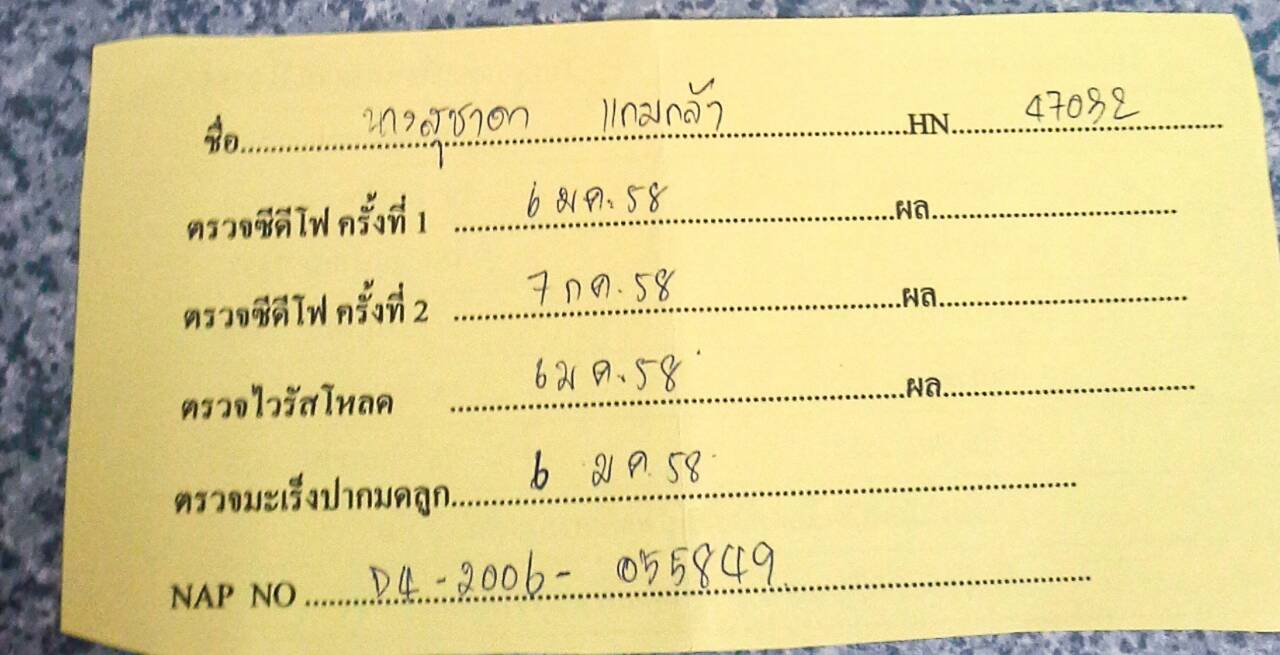 ชื่อ นางสุชาดา แกมกล้า HN 47032
ตรวจซีดีโฟ ครั้งที่ 1 6 มค. 58 ผล
ตรวจซีดีโฟ ครั้งที่ 2 7 กค. 58 ผล
ตรวจไวรัสโหลด 6 มค. 58 ผล
ตรวจมะเร็งปากมดลูก 6 มค. 58
NAP NO D4-2006-055849